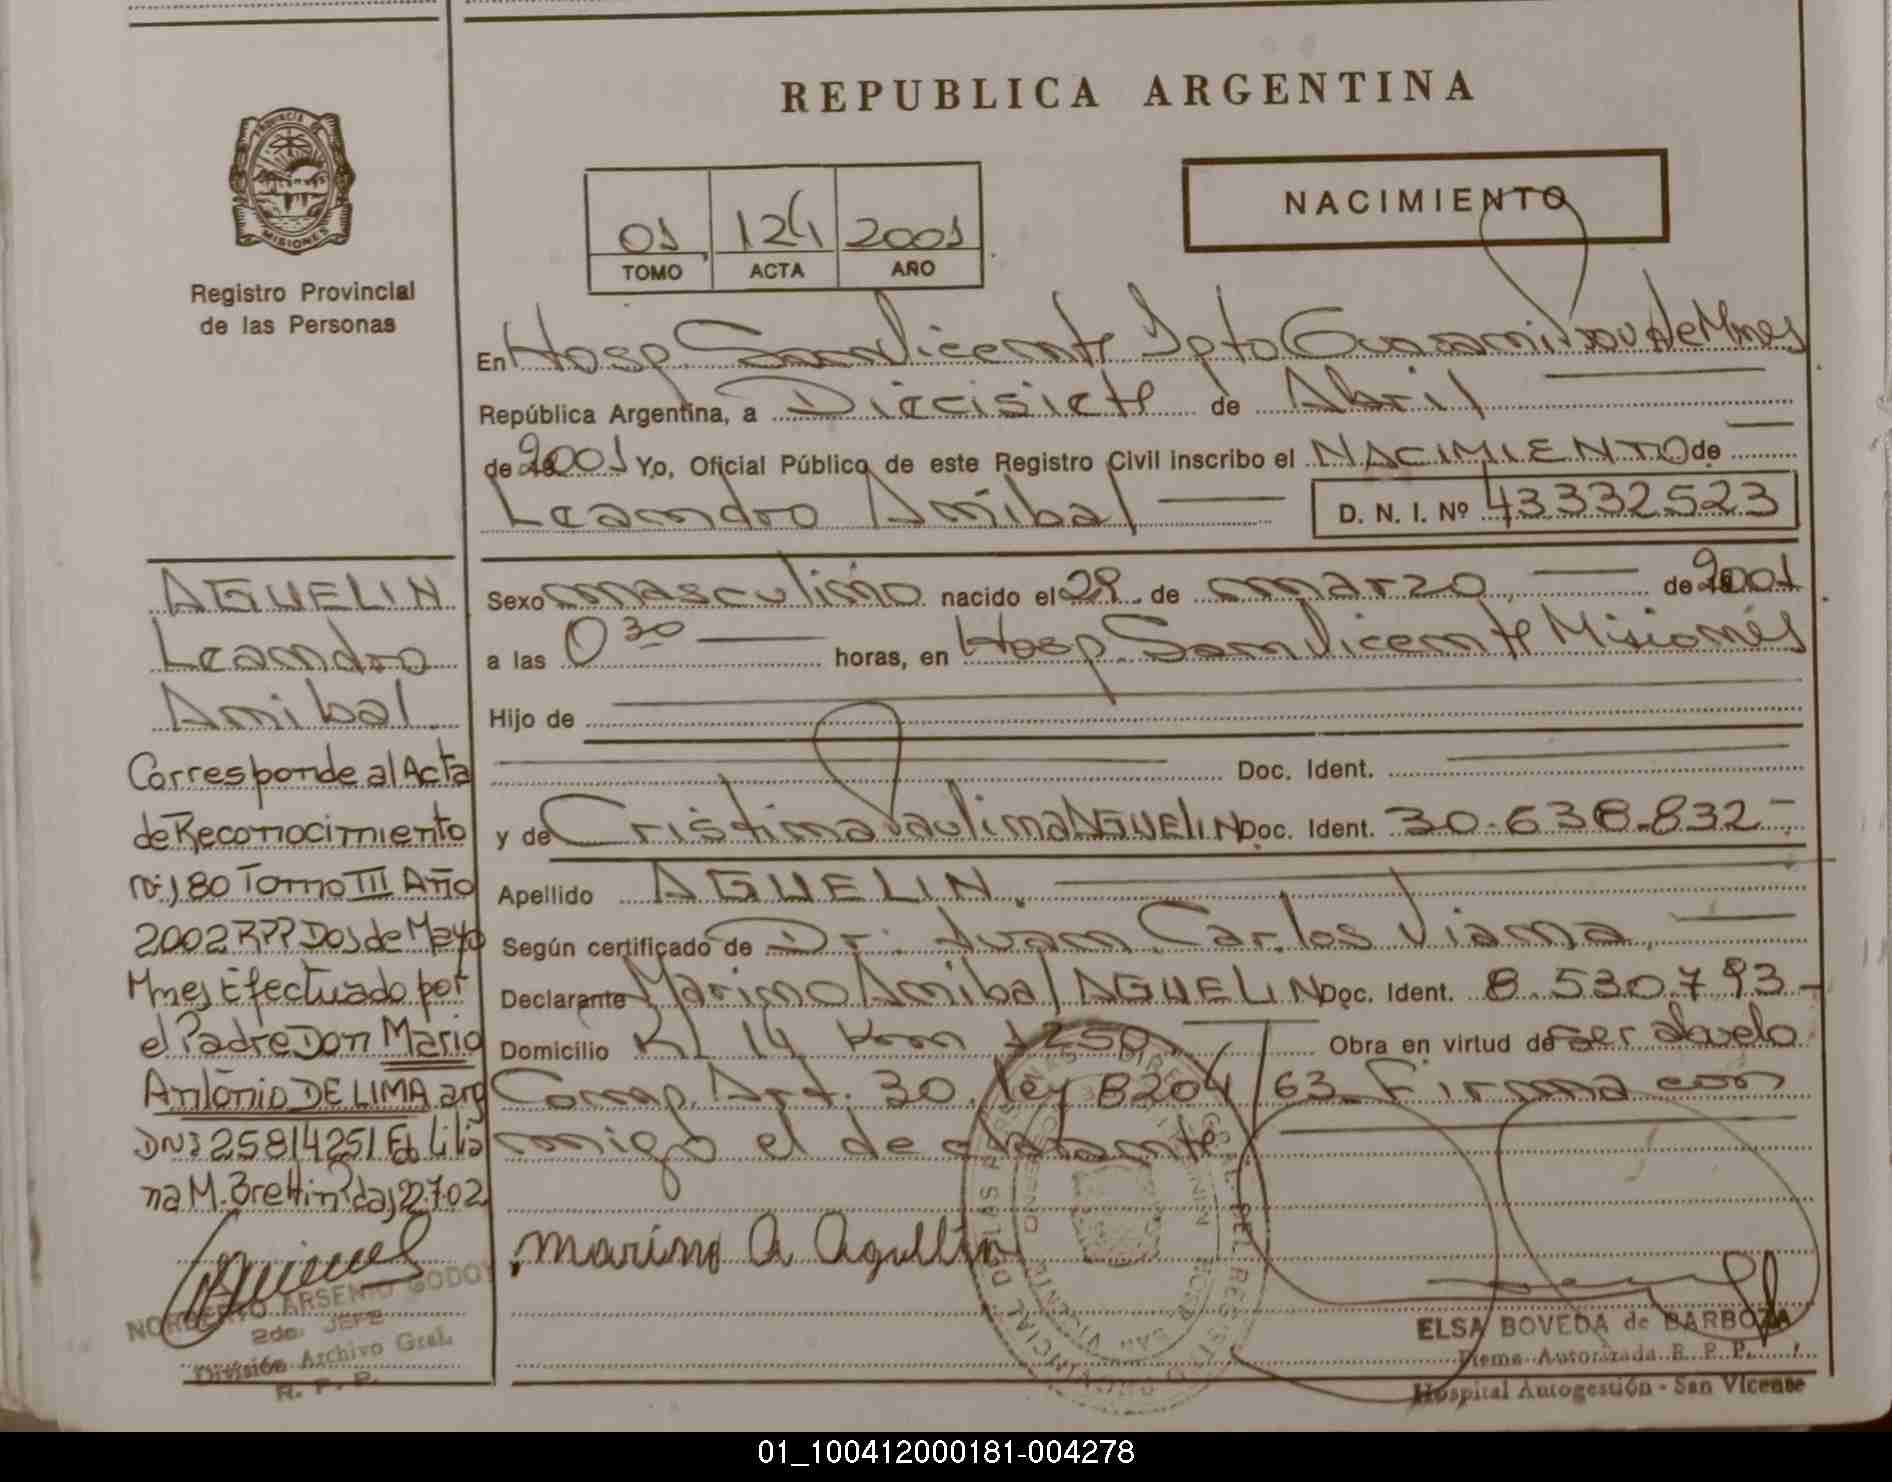 REPUBLICA ARGENTINA
PROVINCIA DE
MISIONES
Registro Provincial
de las Personas
01 124 2001
TOMO ACTA AÑO
NACIMIENTO
En Hosp. San Vicente Dpto Guaraní Prov de Mnes
República Argentina, a Diecisiete de Abril
de 2001 Yo, Oficial Público de este Registro Civil inscribo el NACIMIENTO de
Leandro Anibal D. N. I. Nº 43332523
Sexo masculino nacido el 29 de marzo de 2001
a las 0 30 horas, en Hosp. San Vicente Misiones
Hijo de
Doc. Ident.
y de Cristina Paulina AGUELIN Doc. Ident. 30.638.832-
Apellido AGUELIN
Según certificado de Dr. Juan Carlos Viana
Declarante Marino Anibal AGUELIN Doc. Ident. 8.530.793-
Domicilio Km 1250 Obra en virtud de ser abuelo
Comp. Art. 30 ley 8204/63 Firma con
migo el declarante
marino A Aguellin
ELSA BOVEDA de BARBOZA
Firma Autorizada R. P. P.
Hospital Autogestión - San Vicente
AGUELIN
Leandro
Anibal
Corresponde al Acta
de Reconocimiento
Nº 180 Tomo III Año
2002 RPP Dos de Mayo
Mnes Efectuado por
el Padre Don Mario
Antonio DE LIMA arg
DNI 25814251 Lilia
na M. 22.7.02
NORBERTO ARSENIO GODOY
2do. JEFE
División Archivo Gral.
R. P. P.
01_100412000181-004278